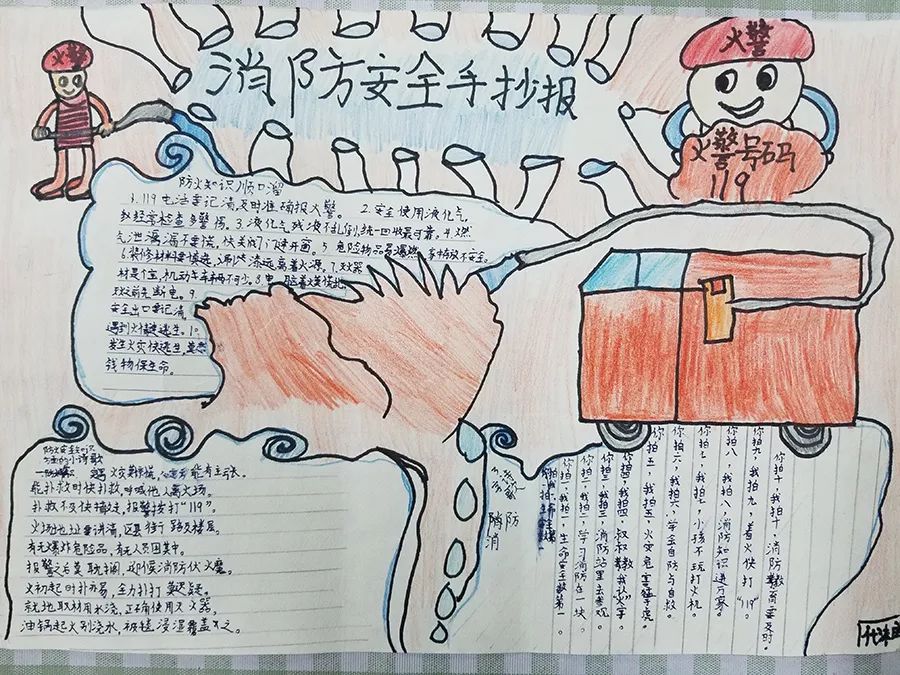 消防安全手抄报
火警
火警
火警号码
119
防火知识顺口溜
1.119电话要记清,及时准确报火警。 2.安全使用液化气,
3.液化气残液不乱倒,统一回收最可靠。4.燃
气泄漏 快关阀门 5.危险物品易爆燃,
6.装修材料要慎选, 远离着火源。7.灭火器
材是个宝,机动车车辆不可少。8.电
前先断电。9
安全出口要记清,
遇到火情快逃生。10
发生火灾快逃生,莫恋
钱物保生命。
防火安全知识
小诗歌
遇 火灾莫惊慌, 有主张。
能扑救时快扑救,呼喊他人离火场。
扑救不及快搞定,报警按打“119”。
火场地址要讲清,区县街路及楼层。
有无爆炸危险品,有无人员困其中。
报警之后莫耽搁,迎候消防伏火魔。
火初起时扑亦易,全力扑打莫迟疑。
就地取材用水浇,正确使用灭火器。
油锅起火别浇水,被毯浸湿覆盖之。
消防
你拍一,我拍一,生命安全数第一。
你拍二,我拍二,学习消防在一块。
你拍三,我拍三,消防站里去参观。
你拍四,我拍四,叔叔教我“认”字。
你拍五,我拍五,火灾危害
你拍六,我拍六,学会自防与自救。
你拍七,我拍七,小孩不玩打火机。
你拍八,我拍八,消防知识进万家。
你拍九,我拍九,着火快打“119”。
你拍十,我拍十,消防教育要及时。